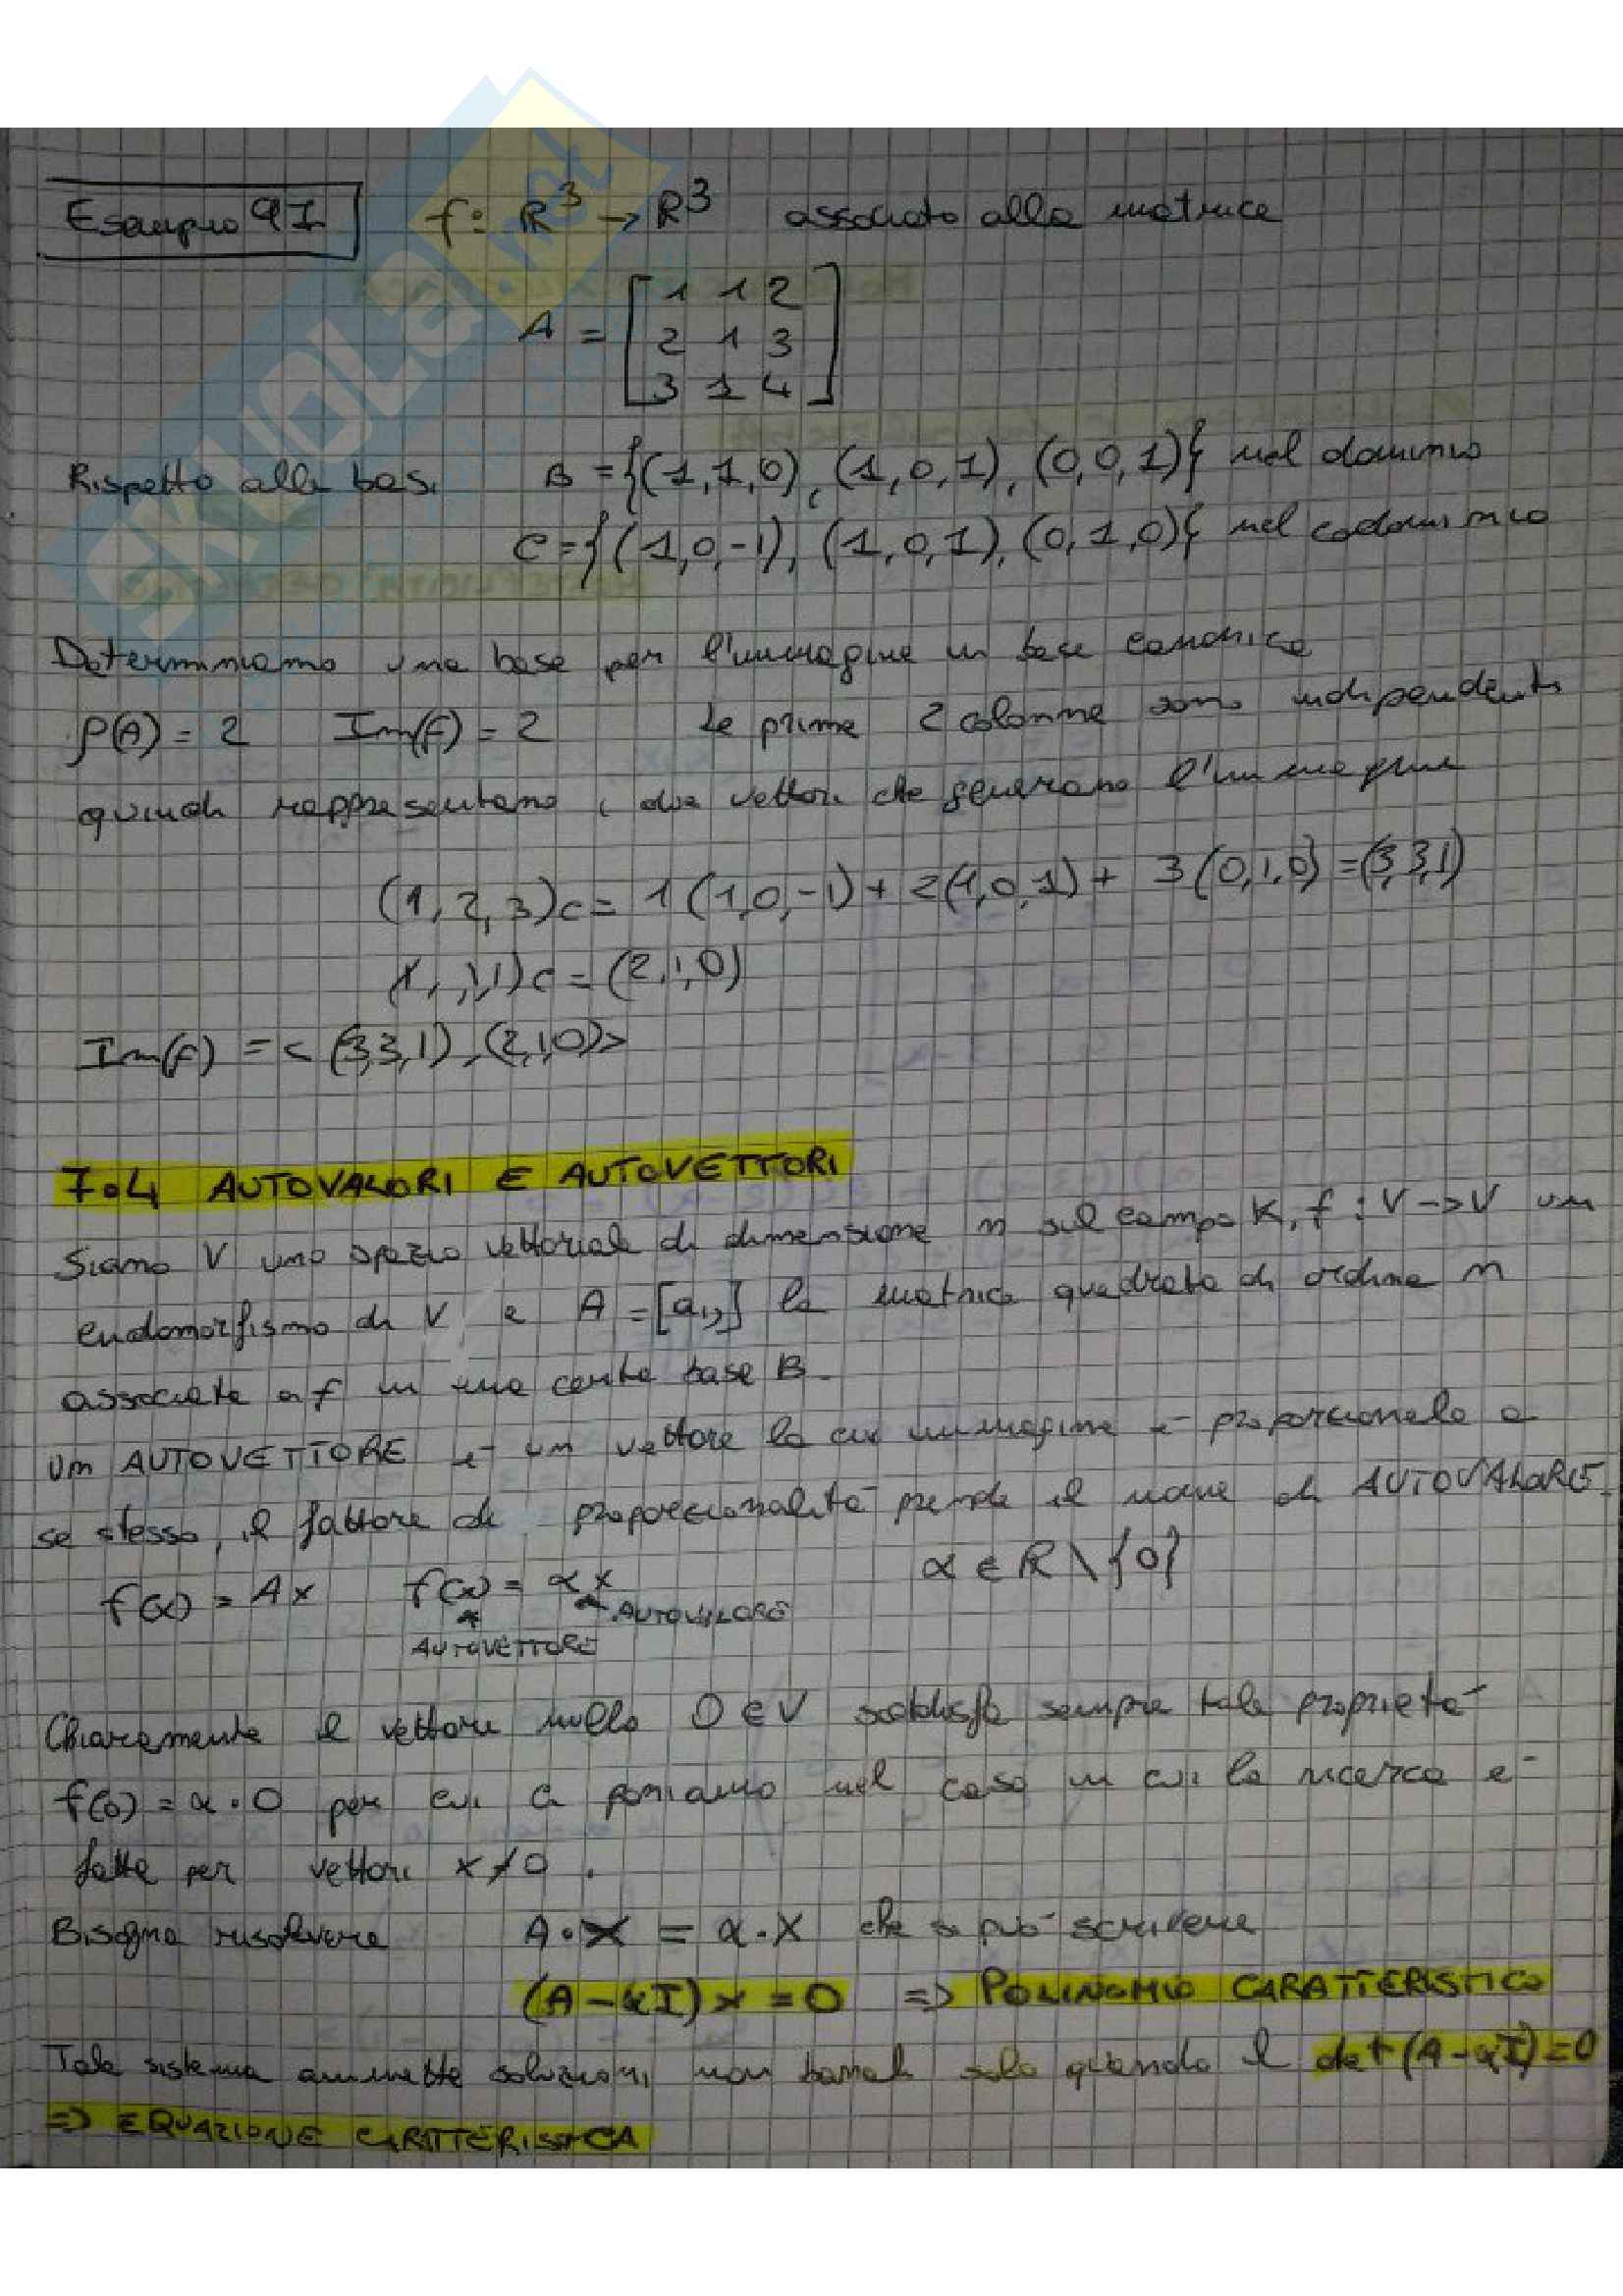 SKUOLA.net
Esempio 9I f: R³ → R³ associato alla matrice
A = [1 1 2
2 1 3
3 1 4]
Rispetto alle basi B = {(1,1,0), (1,0,1), (0,0,1)} nel dominio
C = {(1,0,-1), (1,0,1), (0,1,0)} nel codominio
Determiniamo una base per l'immagine in base canonica
ρ(A) = 2 Im(f) = 2 Le prime 2 colonne sono indipendenti
quindi rappresentano i due vettori che generano l'immagine
(1,2,3)c = 1(1,0,-1) + 2(1,0,1) + 3(0,1,0) = (3,3,1)
(1,1,1)c = (2,1,0)
Im(f) = < (3,3,1), (2,1,0)>
7.4 AUTOVALORI E AUTOVETTORI
Siano V uno spazio vettoriale di dimensione n sul campo K, f: V → V un
endomorfismo di V, e A = [aij] la matrice quadrata di ordine n
associata a f in una certa base B.
Un AUTOVETTORE è un vettore la cui immagine è proporzionale a
se stesso, il fattore di proporzionalità prende il nome di AUTOVALORE.
f(x) = Ax f(x) = αx α ∈ R \ {0}
AUTOVALORE
AUTOVETTORE
Chiaramente il vettore nullo 0 ∈ V soddisfa sempre tale proprietà
f(0) = α · 0 per cui ci poniamo nel caso in cui la ricerca è
fatta per vettori x ≠ 0.
Bisogna risolvere A · X = α · X che si può scrivere
(A - αI) x = 0 => POLINOMIO CARATTERISTICO
Tale sistema ammette soluzioni non banali solo quando il det (A - αI) = 0
=> EQUAZIONE CARATTERISTICA